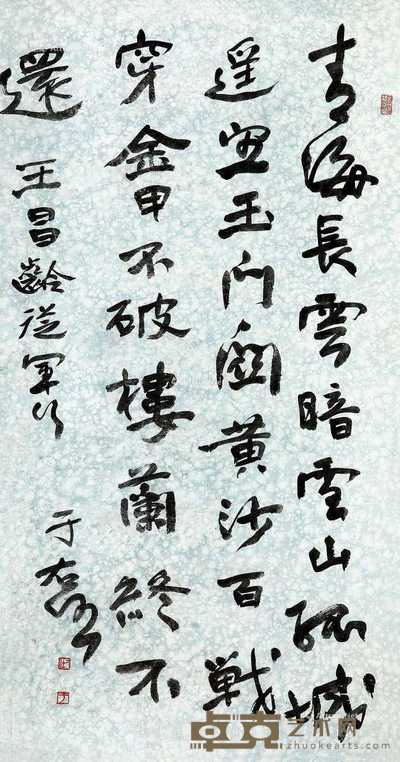 青海長雲暗雪山孤城
遥望玉门關黄沙百戰
穿金甲不破樓蘭終不
還 王昌齡從軍行 于
卓克艺术网
zhuokearts.com